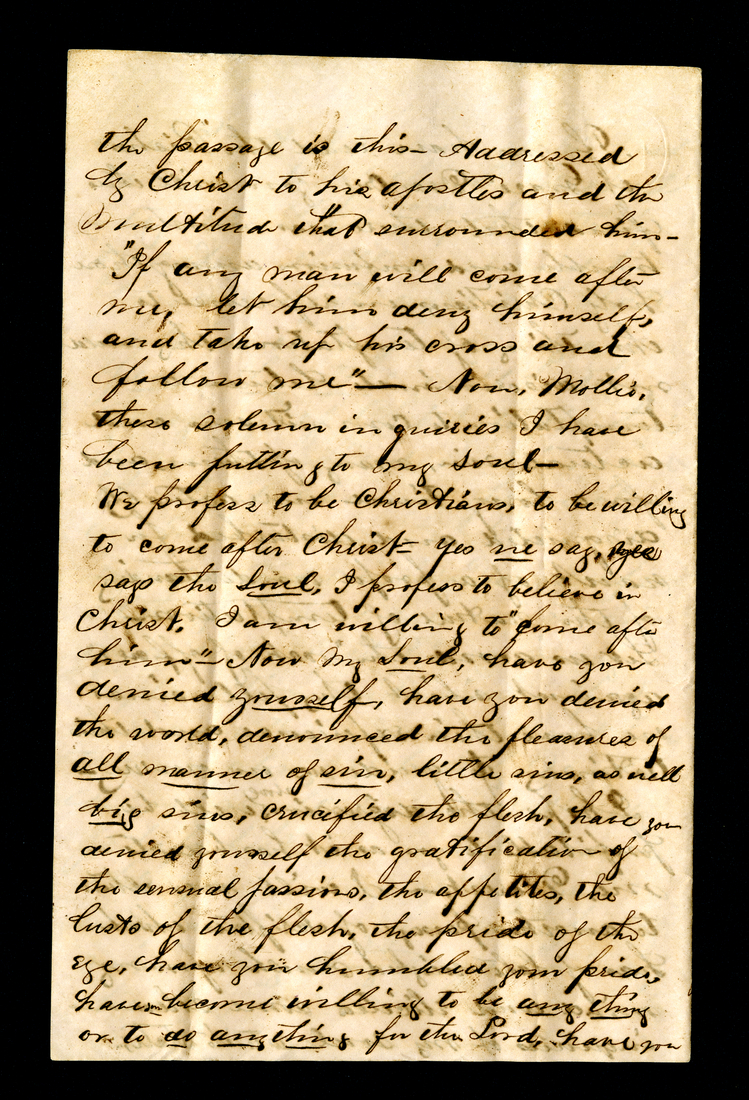 the passage is this- Addressed
by Christ to his apostles and the
Multitude that surrounded him-
"If any man will come after
me, let him deny himself,
and take up his cross and
follow me"— Now, Mollie,
these solemn inquiries I have
been putting to my soul-
We profess to be Christians, to be willing
to come after Christ- yes we say, yes
says the Soul, I profess to believe in
Christ, I am willing to "come after
him"- Now my Soul, have you
denied yourself, have you denied
the world, denounced the pleasures of
all manner of sin, little sins, as well
big sins, crucified the flesh, have you
denied yourself the gratification of
the sensual passions, the appetites, the
lusts of the flesh, the pride of the
eye, have you humbled your pride,
have become willing to be any thing
or to do anything for the Lord, have you